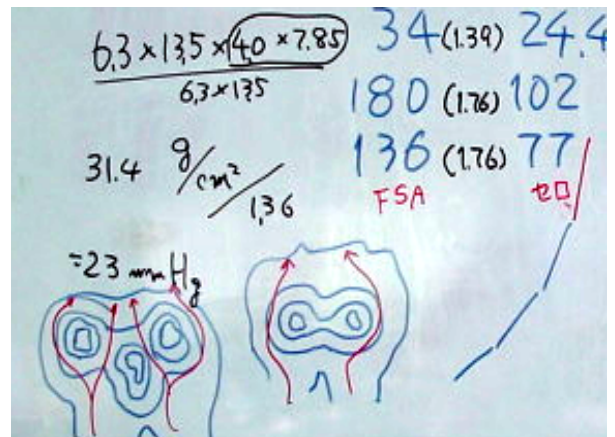 6,3 × 13,5 × 4,0 × 7.85
6,3 × 135
31.4 g/cm² / 1,36
=23 mmHg
34 (1.39) 24.4
180 (1.76) 102
136 (1.76) 77
FSA セロ